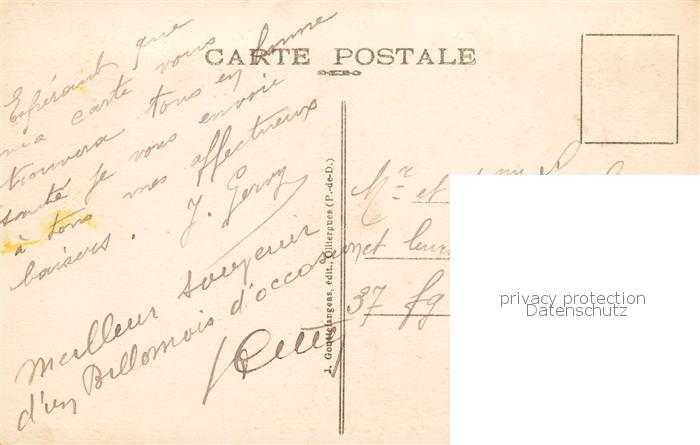 CARTE POSTALE
Espérant que
ma carte vous
trouvera tous en bonne
santé je vous envoie
à tous mes affectueux
baisers. J. Gervy
Meilleur souvenir
d'un Billomois d'occasion
J. Goutteḟangeas, édit., Olliergues (P.-de-D.)
Mr et
et leurs
37 fg
privacy protection
Datenschutz